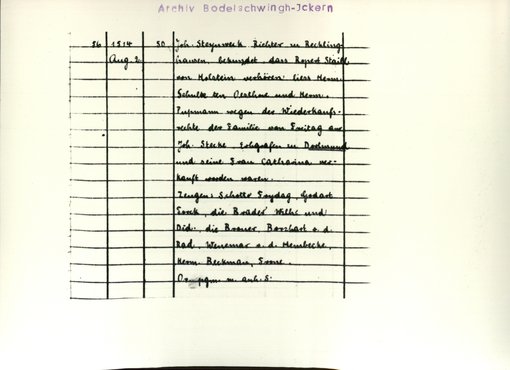 Archiv Bodelschwingh-Ickern
56 1514 50 Joh. Steynweck Richter in Reckling-
Aug. 2. hausen bekundet, dass Ropert Staill
von Holstein verhören liess Herm.
Schulte ten Oesthove und Herm.
wegen der Wiederkaufs-
rechte der Familie von Freitag die
Joh. Stecke, Erbgrafen in Dortmund
und seine Frau Catharina ver-
kauft worden waren.
Zeugen: Schotte Frydag, Godart
Torck, die Brüder Wilh. und
Did., die Brower, Borchart v. d.
Rad, Wenemar v. d. Hembecke,
Herm. Beckman, Frone.
Or. pgm. m. anh. S.